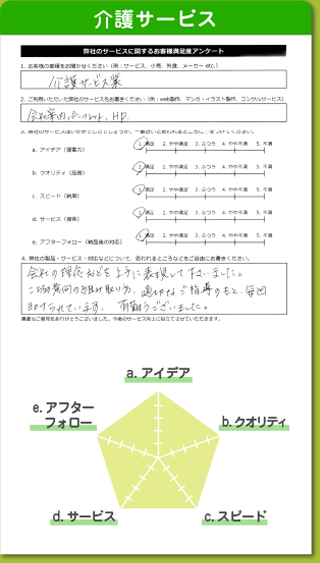 介護サービス
弊社のサービスに関するお客様満足度アンケート
1. お客様の業種をお聞かせください（例：サービス、小売、外食、メーカー etc.）
介護サービス業
2. ご利用いただいた弊社のサービスをお書きください（例：web製作、マンガ・イラスト製作、コンサルサービス）
会社案内、パンフレット、HP.
a. アイデア（提案力） 1. 満足 2. やや満足 3. ふつう 4. やや不満 5. 不満
b. クオリティ（品質） 1. 満足 2. やや満足 3. ふつう 4. やや不満 5. 不満
c. スピード（納期） 1. 満足 2. やや満足 3. ふつう 4. やや不満 5. 不満
d. サービス（接客） 1. 満足 2. やや満足 3. ふつう 4. やや不満 5. 不満
e. アフターフォロー（納品後の対応） 1. 満足 2. やや満足 3. ふつう 4. やや不満 5. 不満
4. 弊社の製品・サービス・対応などについて、思われるところなどをご自由にお書きください。
会社の理念などを上手に表現して下さいました。
適切なご指導のもと、毎回
助けられています。有難うございました。
貴重なご意見をありがとうございました。今後のサービス向上に役立てさせていただきます。
a. アイデア
e. アフター
フォロー
b. クオリティ
d. サービス
c. スピード